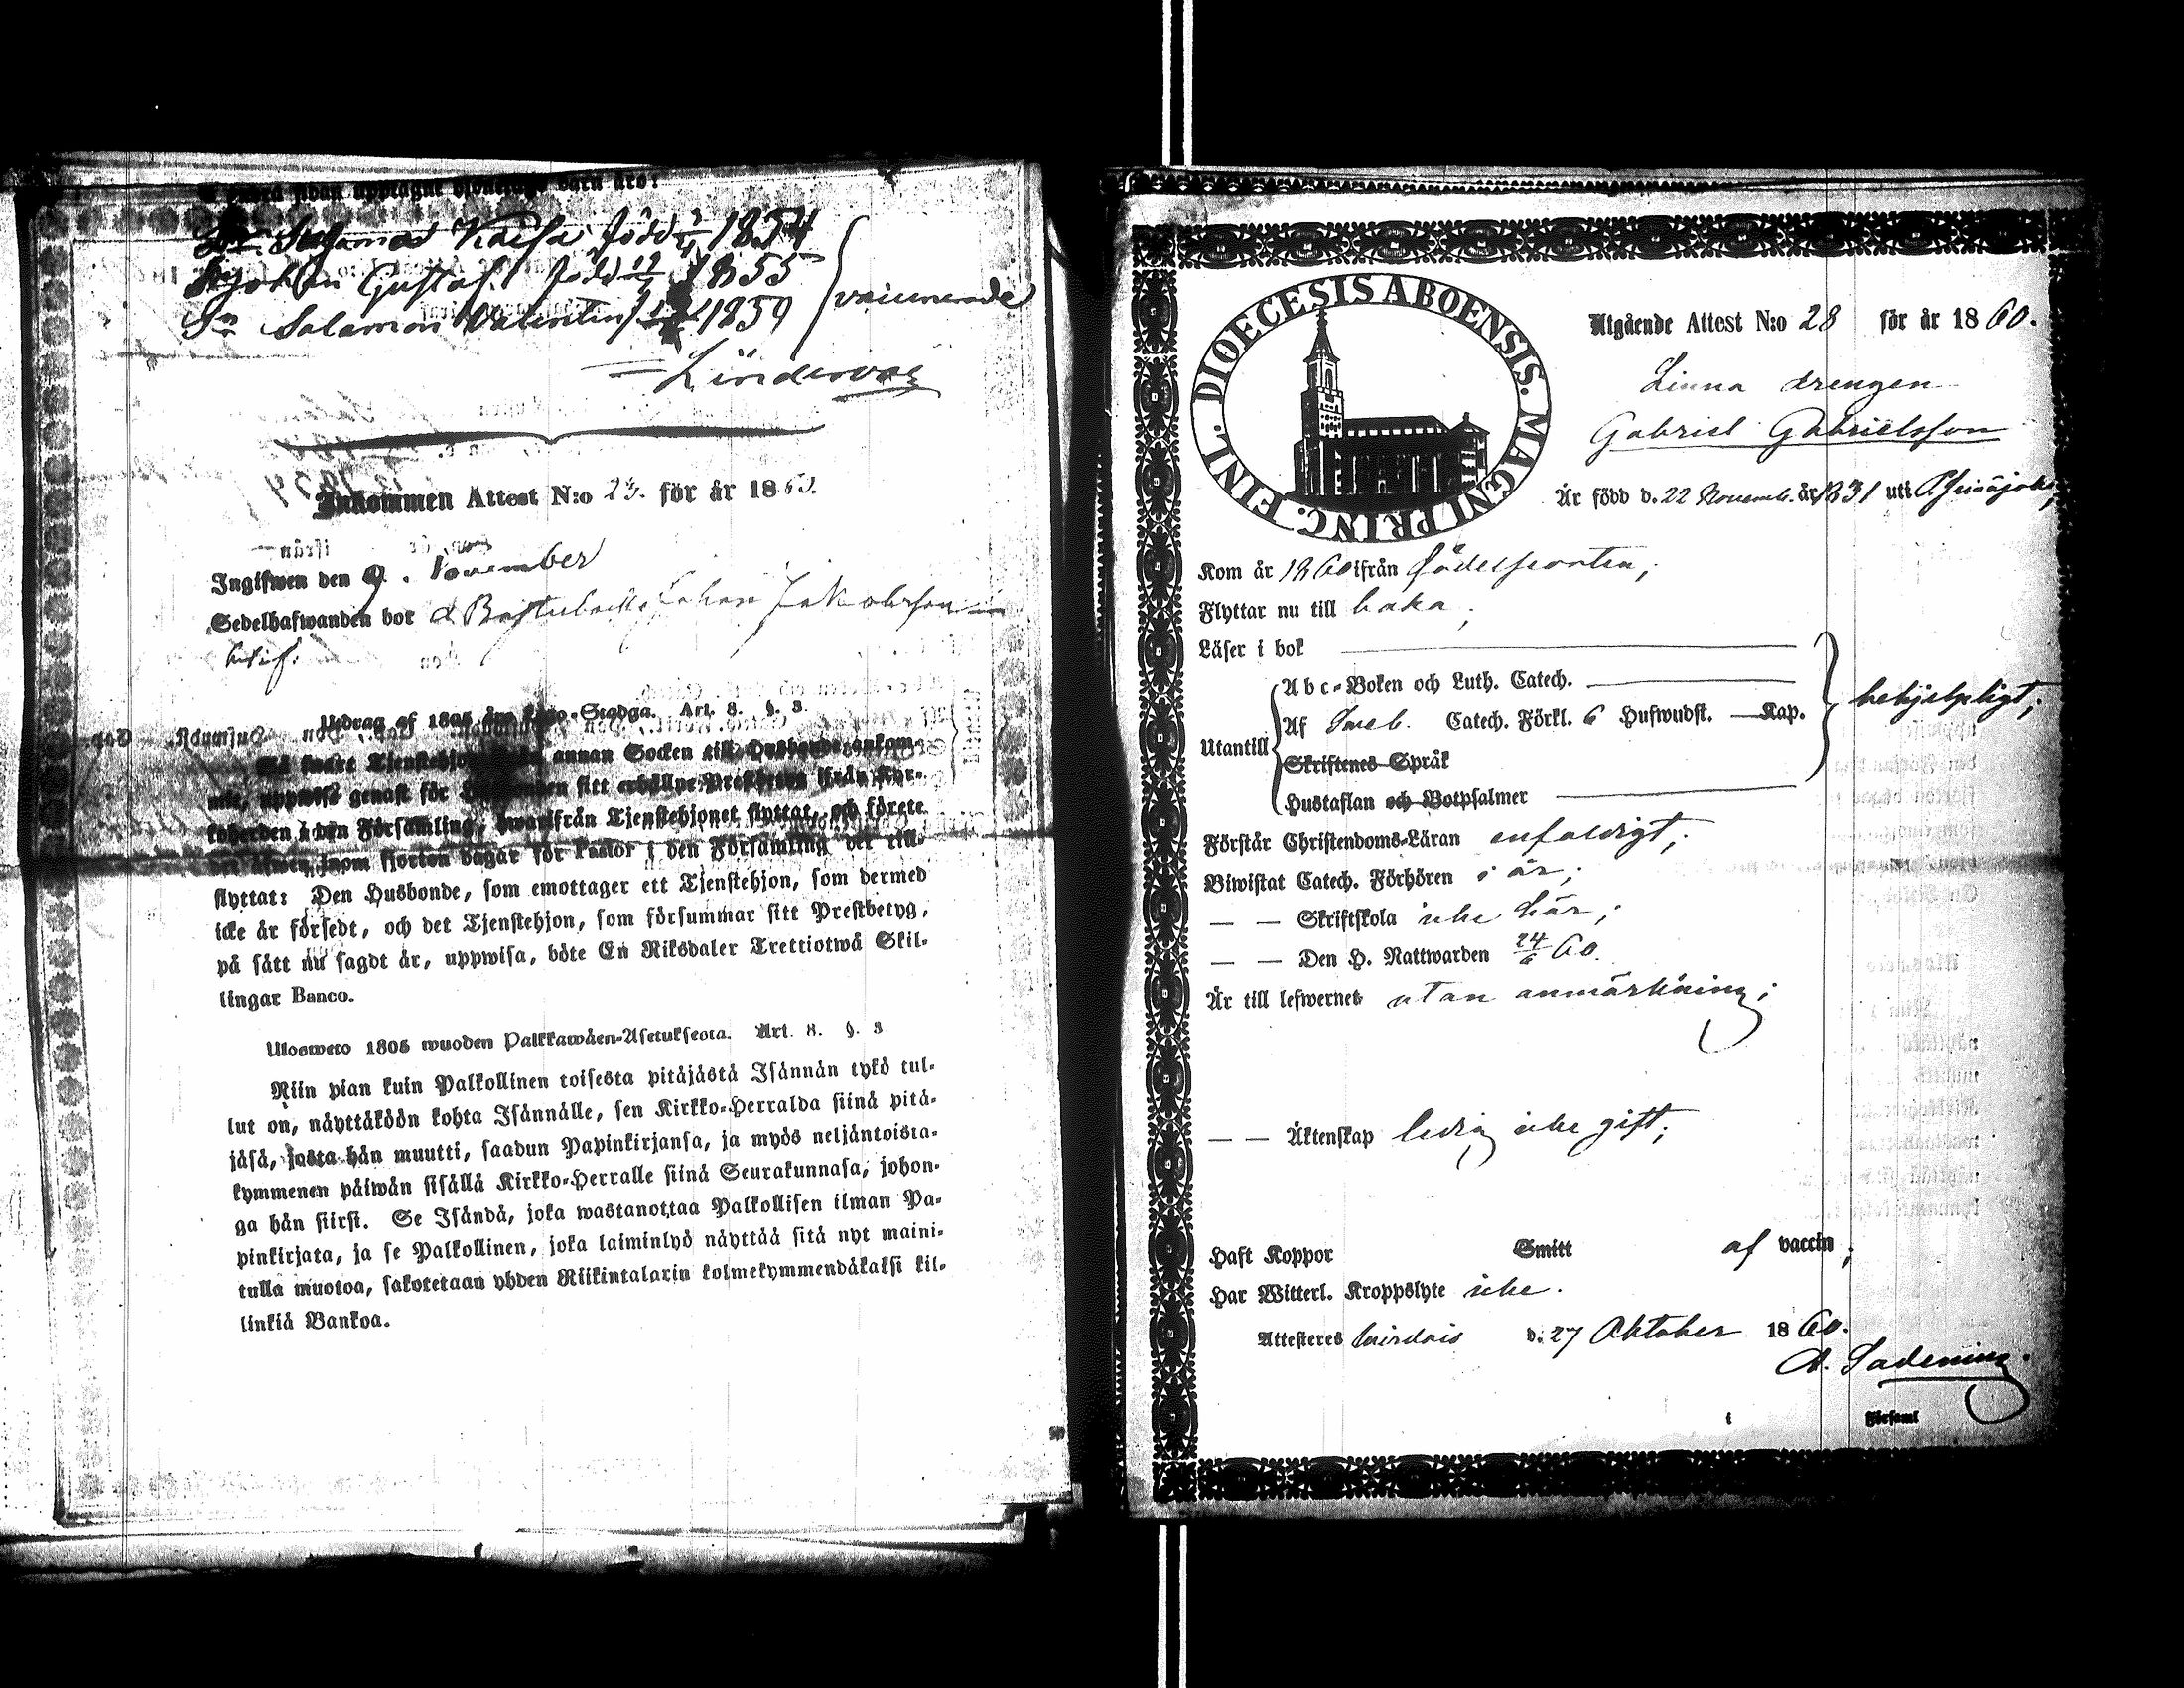 sidan upptagne barn äro:
Kaisa född 1854
Johan Gustaf född 12/ 1855
Sn Salamon Valentin 1859
vaccinerade
Inkommen Attest N:o 23. för år 1860.
Ingifwen den 9. November
Sedelhafwanden bor Johan Jakobsson
Utdrag af 1805 års Lego-Stadga. Art. 8. §. 3.
Så snart Tjenstehjon annan Socken till Husbonde ankom-
mit, uppwise genast för sitt erhållne Prestbetyg ifrån Kyr-
koherden i den Församling, hwarifrån Tjenstehjonet flyttat, och förete
det äfwen inom fjorton dagar för Pastor i den Församling det till-
flyttat: Den Husbonde, som emottager ett Tjenstehjon, som dermed
icke är försedt, och det Tjenstehjon, som försummar sitt Prestbetyg,
på sätt nu sagdt är, uppwisa, böte En Riksdaler Trettiotwå Skil-
lingar Banco.
Ulosweto 1805 wuoden Palkkawäen-Asetuksesta. Art. 8. §. 3
Niin pian kuin Palkollinen toisesta pitäjästä Isännän tykö tul-
lut on, näyttäköön kohta Isännälle, sen Kirkko-Herralda siinä pitä-
jäsä, josta hän muutti, saadun Papinkirjansa, ja myös neljäntoista-
kymmenen päiwän sisällä Kirkko-Herralle siinä Seurakunnasa, johon-
ga hän siirsi. Se Isändä, joka wastanottaa Palkollisen ilman Pa-
pinkirjata, ja se Palkollinen, joka laiminlyö näyttää sitä nyt maini-
tulla muotoa, sakotetaan yhden Riikintalarin kolmekymmendäkaksi kil-
linkiä Bankoa.
DIOECESIS ABOENSIS. MAGNI PRINC. FINL.
Utgående Attest N:o 28 för år 1860.
Linna drengen
Gabriel Gabrielsson
Är född d. 22 Novemb. år 1831 uti
Kom år 1860 ifrån födelseorten,
Flyttar nu till baka,
Läser i bok
Abc-Boken och Luth. Catech.
Utantill Af Catech. Förkl. 6 Hufwudst. — Kap. behjelpligt;
Skriftenes Språk
Hustaflan och Botpsalmer
Förstår Christendoms-Läran enfaldigt;
Biwistat Catech. Förhören i år;
— — Skriftskola icke här;
— — Den H. Nattwarden 24/6 60.
Är till lefwernet utan anmärkning;
— — Äktenskap ledig icke gift;
Haft Koppor Smitt af vaccin;
Har Witterl. Kroppslyte icke.
Attesteres d. 27 Oktober 1860.
i Förfaml